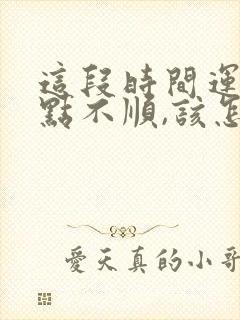 這段時間運
點不順,該怎
愛天真的小哥